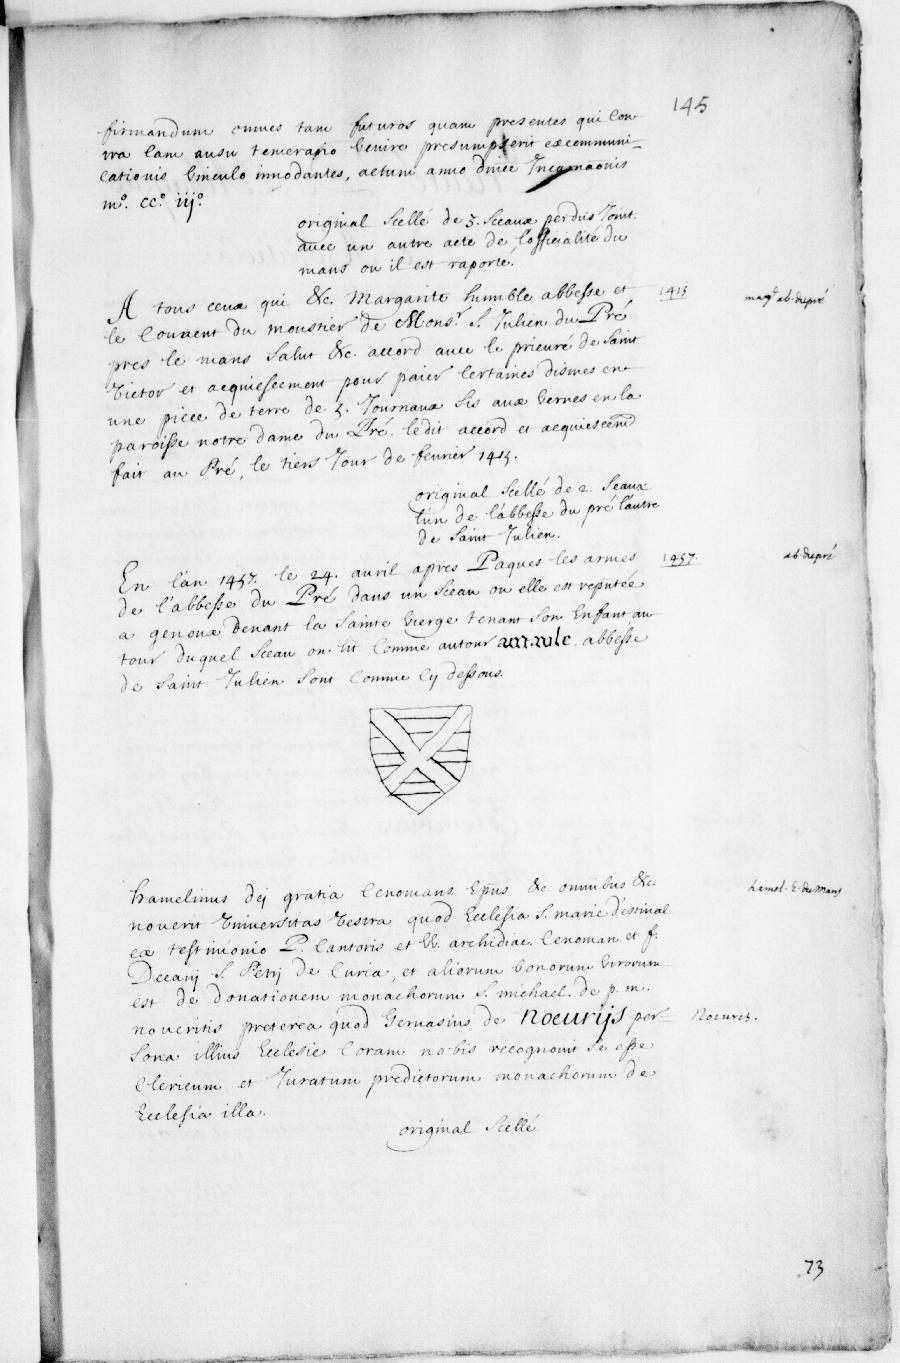 145
firmandum omnes tam futuros quam presentes qui con
tra eam ausu temerario venire presumpserit excommuni-
cationis vinculo innodantes, actum anno dnice Incarnaonis
mº. ccº. iijº.
original Scellé de 3. Sceaux perdus Joint
avec un autre acte de l'officialité du
mans ou il est raporte.
A tous ceux qui &c. Margarite humble abbesse et
1415
marg.d ab. dupré
le Couvent du moustier de Mons.r S. Julien du Pré
pres le mans Salut &c. accord avec le prieuré de Saint
Victor et acquiescement pour paier Certaines dismes en
une piece de terre de 5. Journaux sis aux Vernes en la
paroisse notre dame du Pré. ledit accord et acquiescem
fait au Pré, le tiers Jour de fevrier 1415.
original Scellé de 2 Seaux
l'un de l'abbesse du pré l'autre
de Saint Julien.
En l'an 1457. le 24. avril apres Paques les armes
1457.
ab. dupré
de l'abbesse du Pré dans un Sceau ou elle est reputée
a genoux Devant la Sainte Vierge tenant Son Enfant au
tour duquel Sceau on lit Comme autour abbesse
de Saint Julien Sont Comme Cy dessous.
hamelinus dej gratia Cenomans. Epũs &c. omnibus &c.
hamel. E. du Mans
noverit Universitas Vestra quod Ecclesia S. marie d'estival
ex testimonio P. Cantoris et W. archidiac. Cenoman. et f.
Decanj S. Petrj de Curia, et aliorum bonorum Virorum
est de donationem monachorum S. michael. de p. m.
noveritis preterea quod Gervasius de Nocurijs per-
Nocures.
sona illius Ecclesie Coram nobis recognovit se esse
Clericum et Juratum predictorum monachorum de
Ecclesia illa.
original Scellé
73